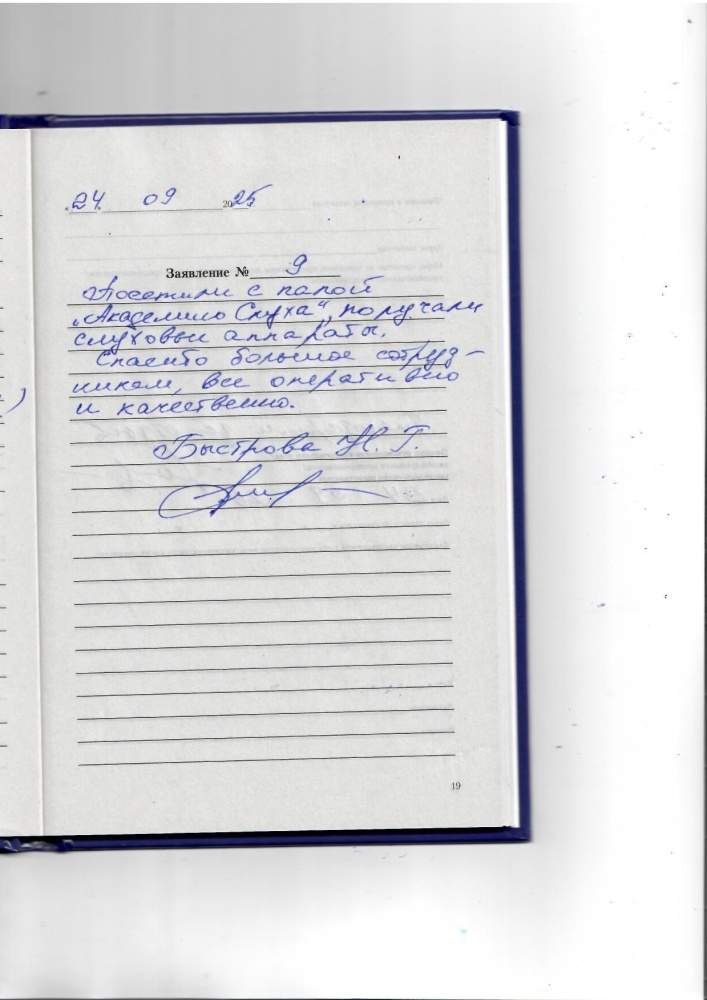 „24" 09 2025
Заявление № 9
Посетили с папой
„Академию Слуха", получали
слуховые аппараты.
Спасибо большое сотруд-
никам, все оперативно
и качественно.
Быстрова Н. Г.
19